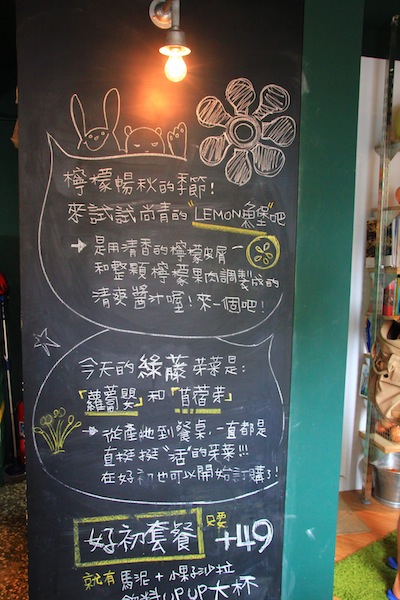 檸檬暢秋的季節!
來試試尚青的"LEMON魚堡"吧
→ 是用清香的檸檬皮屑
和整顆檸檬果肉調製成的
清爽醬汁喔!來一個吧!
今天的綠藤芽菜是:
「蘿蔔嬰」和「苜蓿芽」
→ 從產地到餐桌,一直都是
直挺挺"活"的芽菜!!!
在好初也可以開始訂購了!
好初套餐 只要 +49
就有 馬泥+小果子沙拉
飲料UP UP大杯